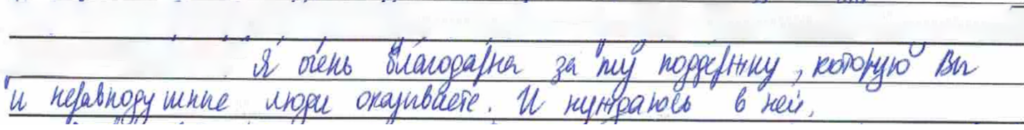 Я очень благодарна за ту поддержку, которую Вы
и неравнодушные люди оказываете. И нуждаюсь в ней.